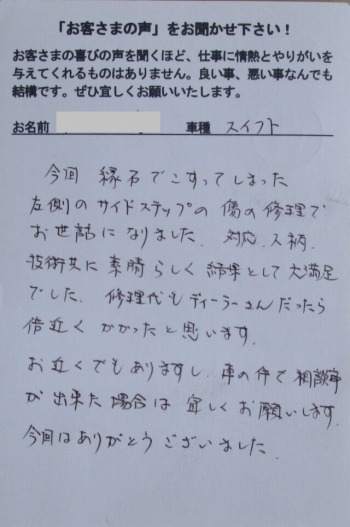 「お客さまの声」をお聞かせ下さい！
お客さまの喜びの声を聞くほど、仕事に情熱とやりがいを
与えてくれるものはありません。良い事、悪い事なんでも
結構です。ぜひ宜しくお願いいたします。
お名前 車種 スイフト
今回 縁石でこすってしまった
左側のサイドステップの傷の修理で
お世話になりました。対応、人柄、
技術共に素晴らしく結果として大満足
でした。修理代もディーラーさんだったら
倍近くかかったと思います。
お近くでもありますし、車の件で相談事
が出来た場合は宜しくお願いします。
今回はありがとうございました。